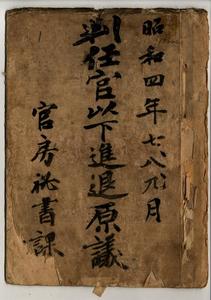 昭和四年七、八、九、月
判任官以下進退原議
官房秘書課